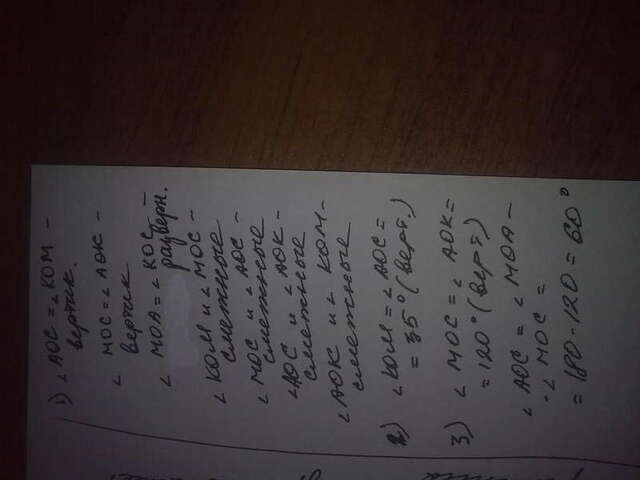 1) ∠AOC = ∠KOM –
вертик.
∠ MOC = ∠ AOK –
вертик
∠ MOA = ∠ KOC –
разверн.
∠ KOM и ∠ MOC –
смежные
∠ MOC и ∠ AOC –
смежные
∠AOC и ∠ AOK –
смежные
∠ AOK и ∠ KOM –
смежные
2) ∠KOM = ∠ AOC =
= 35° (верт.)
3) ∠ MOC = ∠ AOK =
= 120° (верт.)
∠ AOC = ∠ MOA –
- ∠ MOC =
= 180 - 120 = 60°